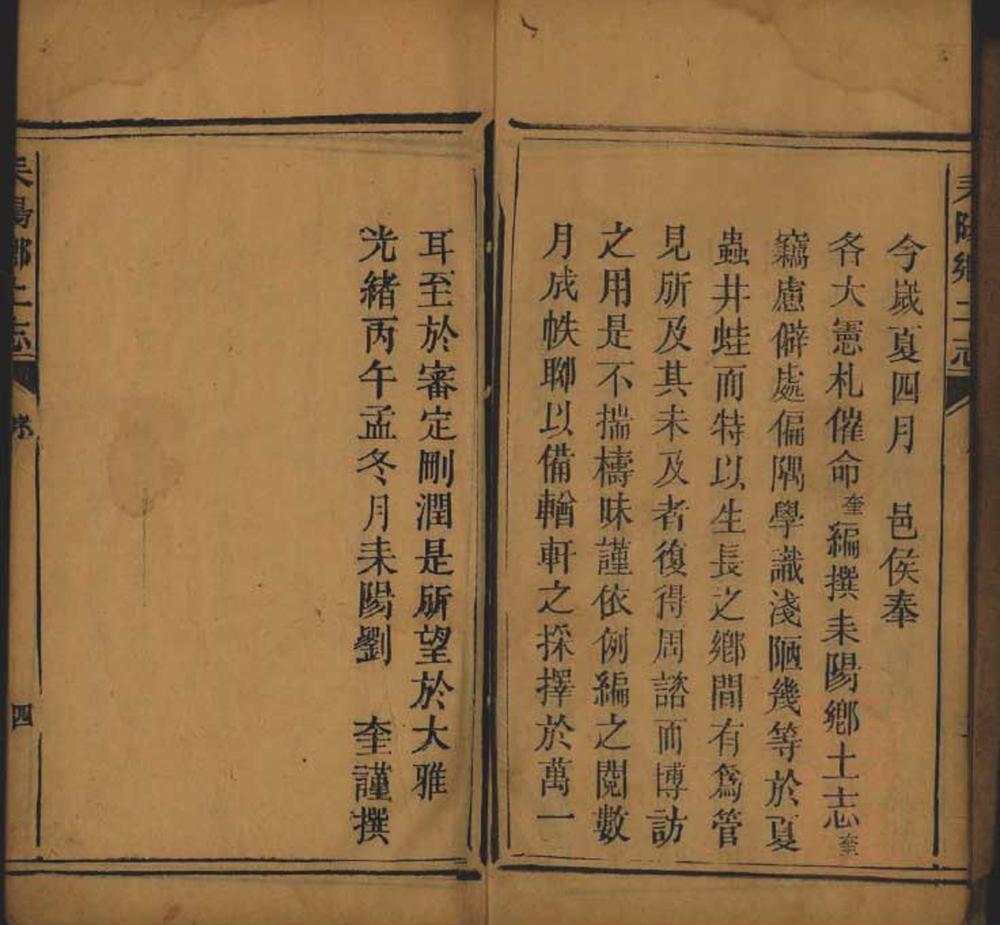 耒陽鄉土志
今歲夏四月 邑侯奉
各大憲札催命奎編撰耒陽鄉土志奎
竊慮僻處偏隅學識淺陋幾等於夏
蟲井蛙而特以生長之鄉間有爲管
見所及其未及者復得周諮而博訪
之用是不揣檮昧謹依例編之閱數
月成帙聊以備輶軒之採擇於萬一
耳至於審定刪潤是所望於大雅
光緒丙午孟冬月耒陽劉 奎謹撰
耒陽鄉土志 序 四